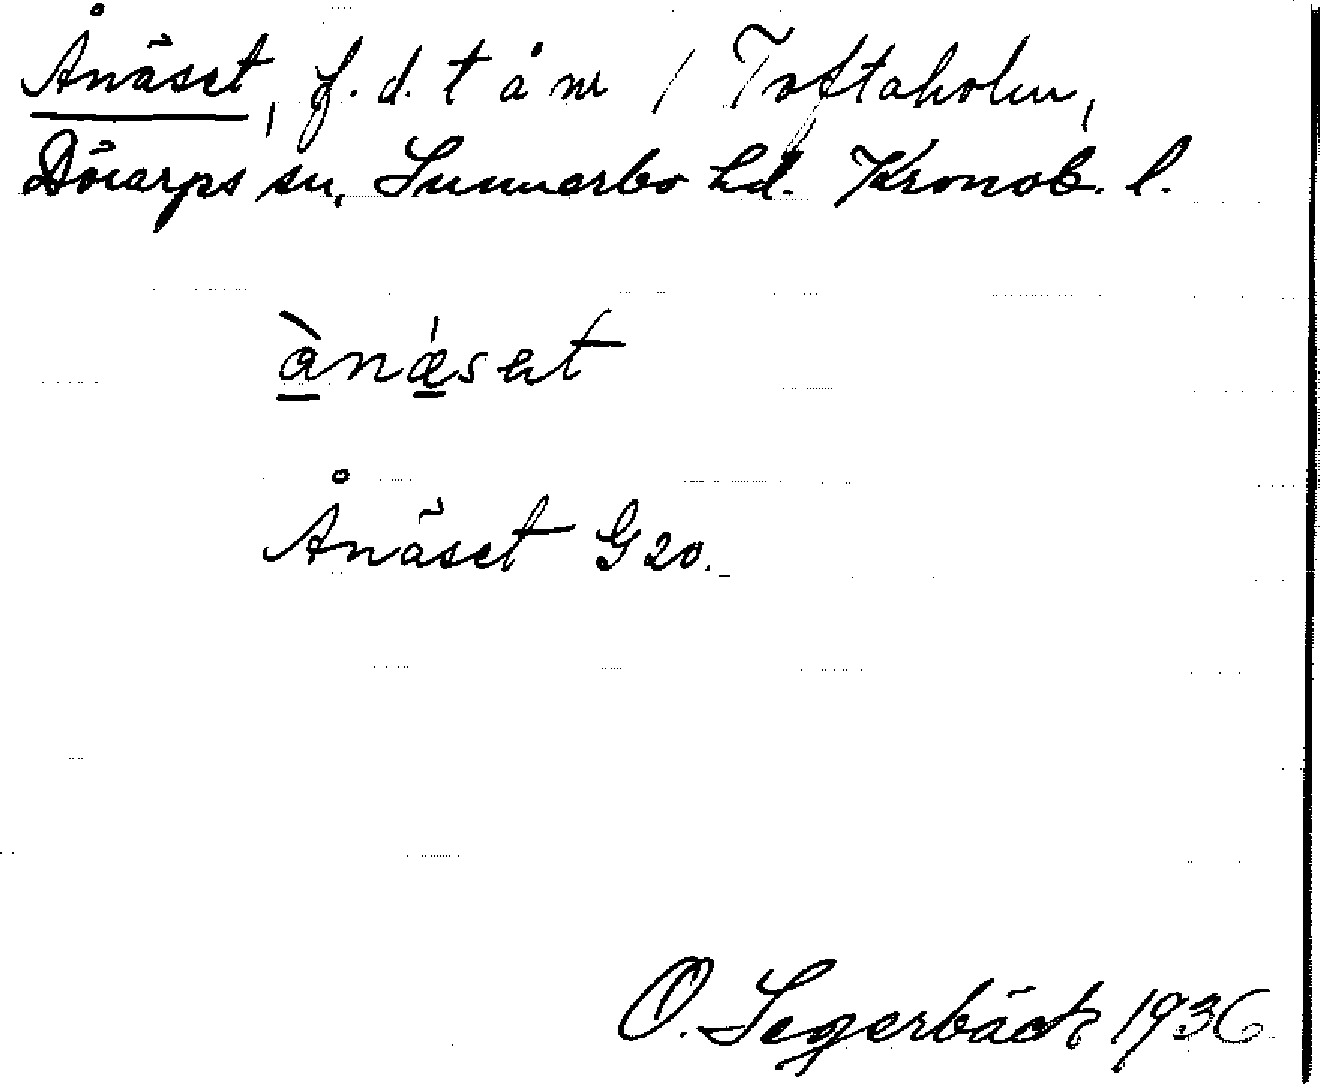 Ånäset, f.d. t å nr 1 Toftaholm,
Dörarps sn, Sunnerbo hd. Kronob. l.
ànǽset
Ånäset G 20.
O. Segerbäck 1936